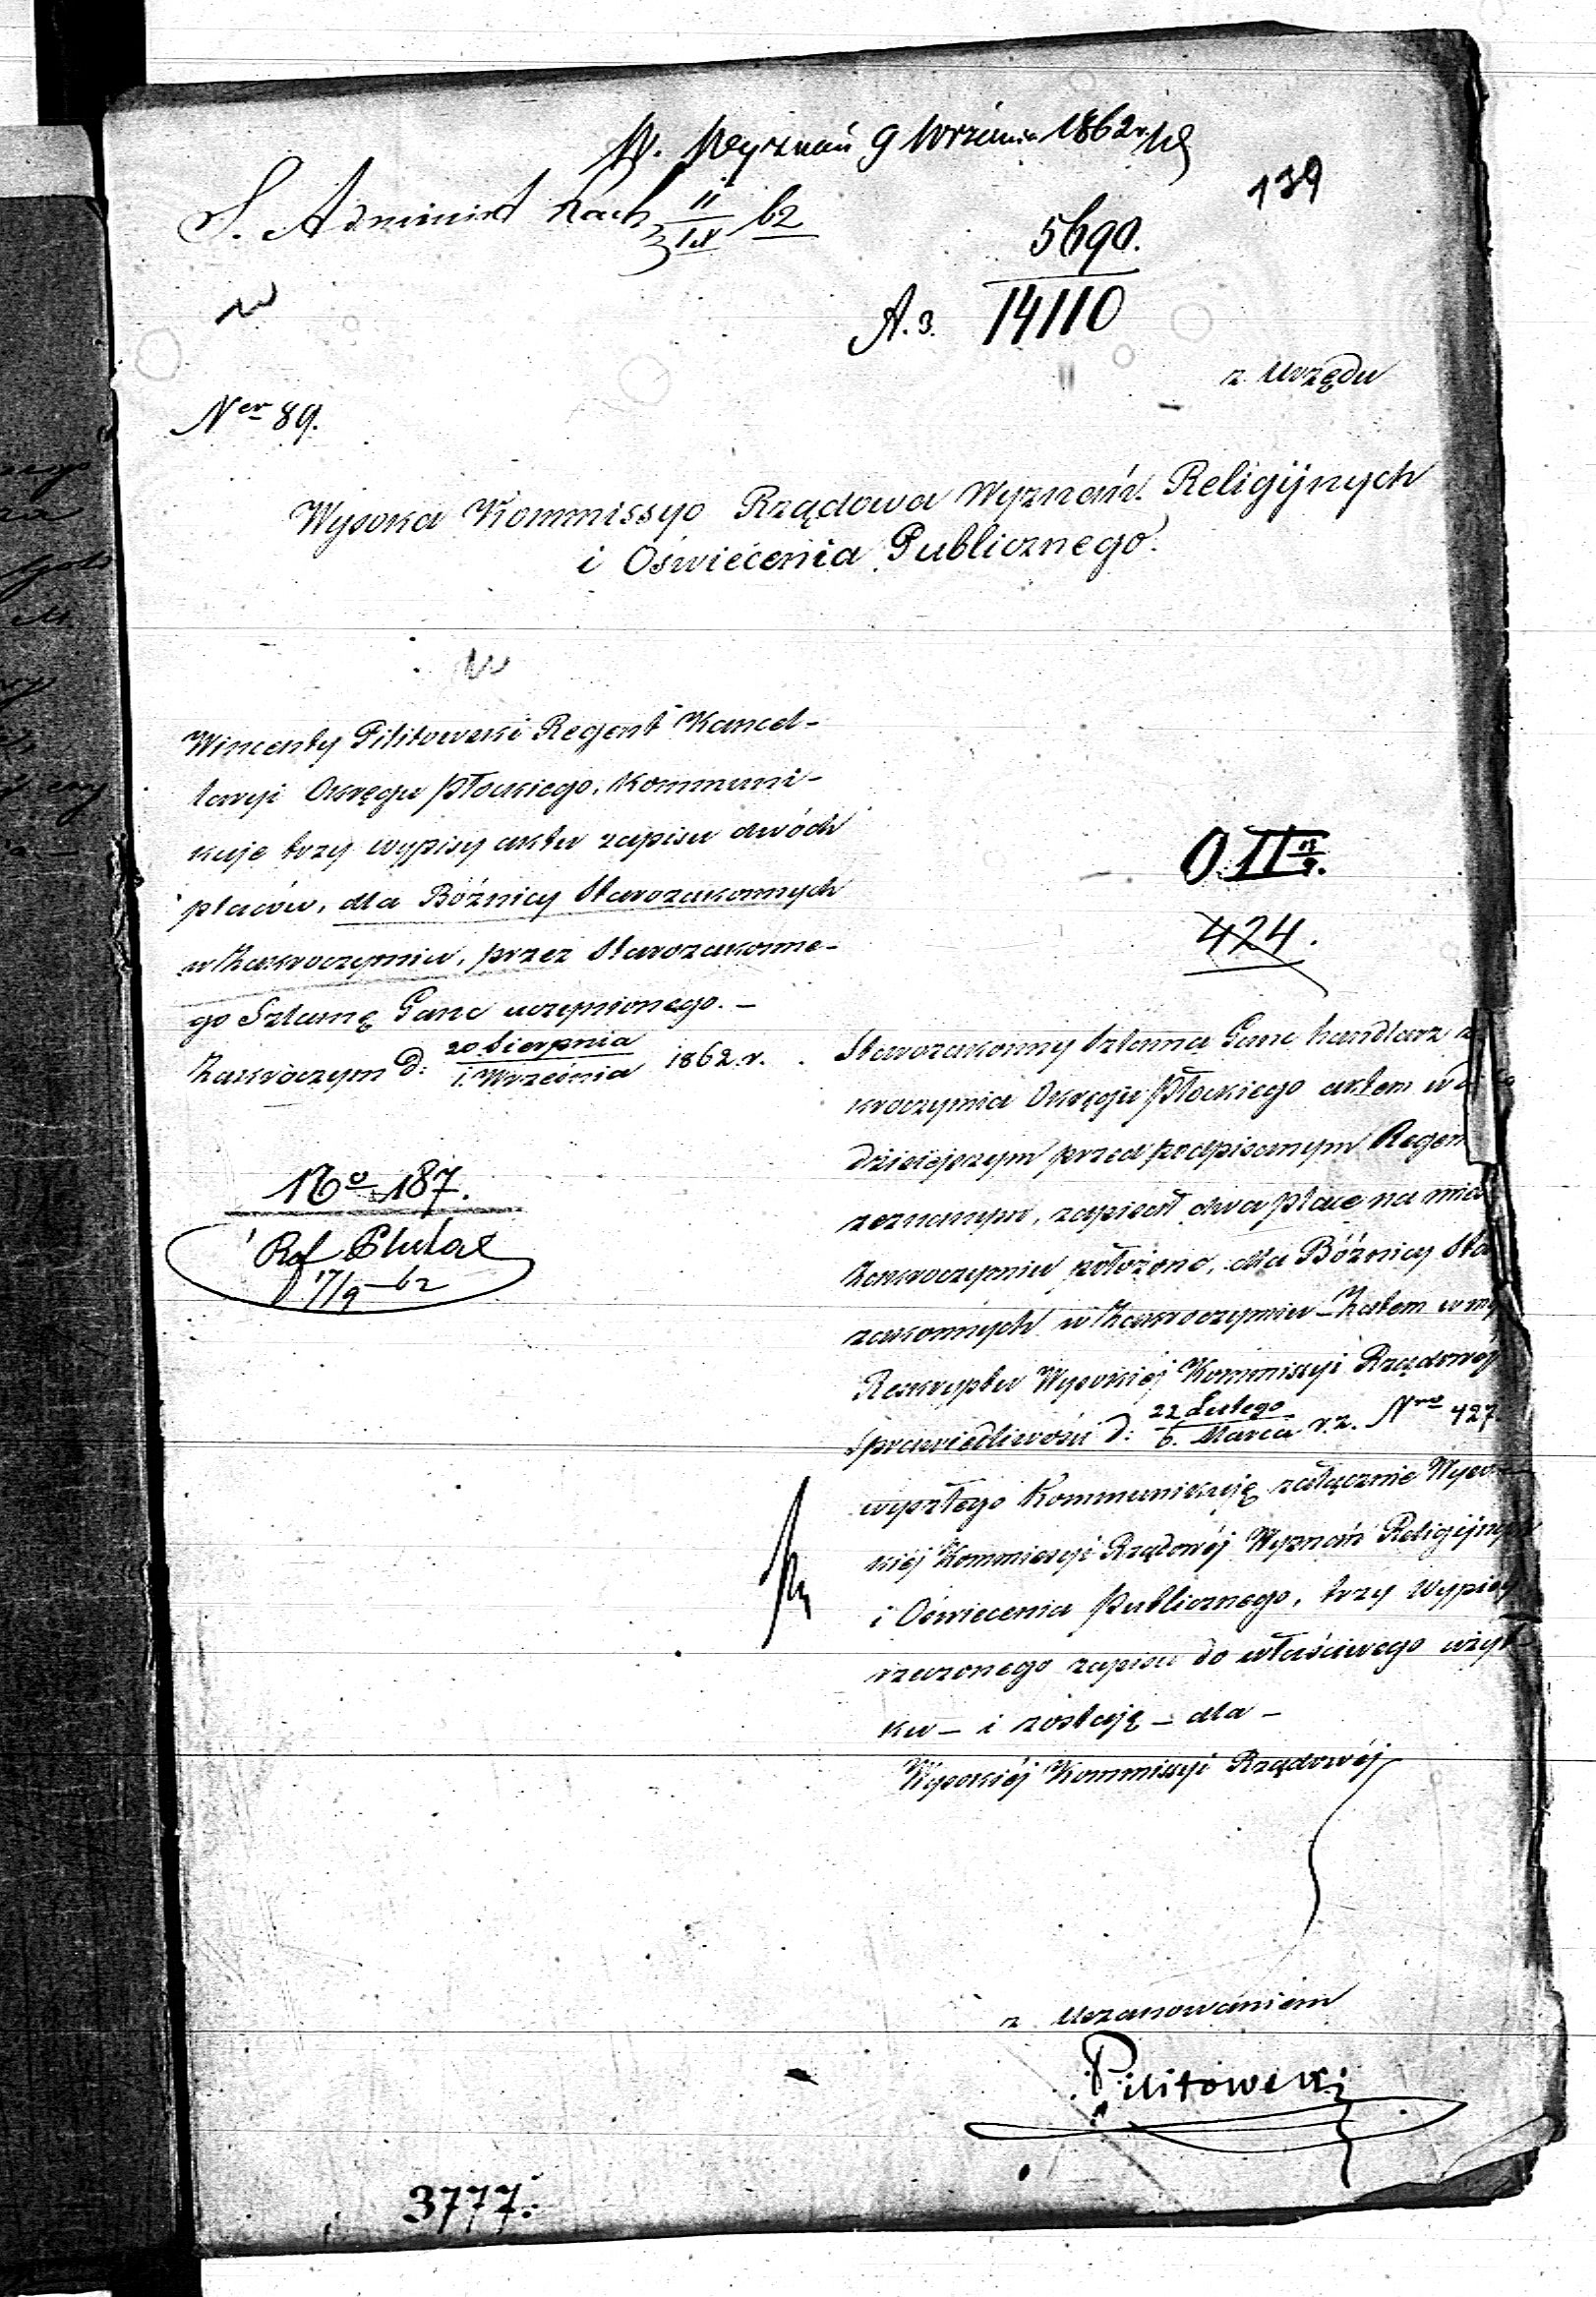 W. Wyznań 9 Września 1862 r.
139
S. Administ Rach 11/IX 62
5690.
A. 3. 14110
z Urzędu
Ner 89.
Wysoka Kommissyo Rządowa Wyznań Religijnych
i Oświécenia Publicznego.
Wincenty Pilitowski Regent Kancel-
laryi Okręgu Płockiego, Kommuni-
kuje trzy wypisy aktu zapisu dwóch
placów, dla Bóżnicy Starozakonnych
w Zakroczymiu, przez Starozakonne-
go Szlamę Ganc uczynionego. –
Zakroczym d: 20 Sierpnia / 1. Września 1862 r.
No 187.
17/9 – 62
O. II
424.
Starozakonny Szlama Ganc handlarz z
kroczymia Okręgu Płockiego aktem w d
dzisiejszym przed podpisanym Regen
zeznanym, zapisał dwa place na mia
Zakroczymiu położone, dla Bóżnicy Sta
zakonnych w Zakroczymiu – Zatem w my
Reskryptu Wysokiéj Kommissyi Rządowéj
Sprawiedliwości d: 22 Lutego / 6. Marca r. z. Nro 427
wyszłego Kommunikuję załącznie Wyso-
kiéj Kommissyi Rządowéj Wyznań Religijnych
i Oświecenia Publicznego, trzy Wypisy
rzeczonego zapisu do właściwego użyt-
ku – i zostaję – dla –
Wysokiéj Kommissyi Rządowéj
z Uszanowaniem
Pilitowski
3777.